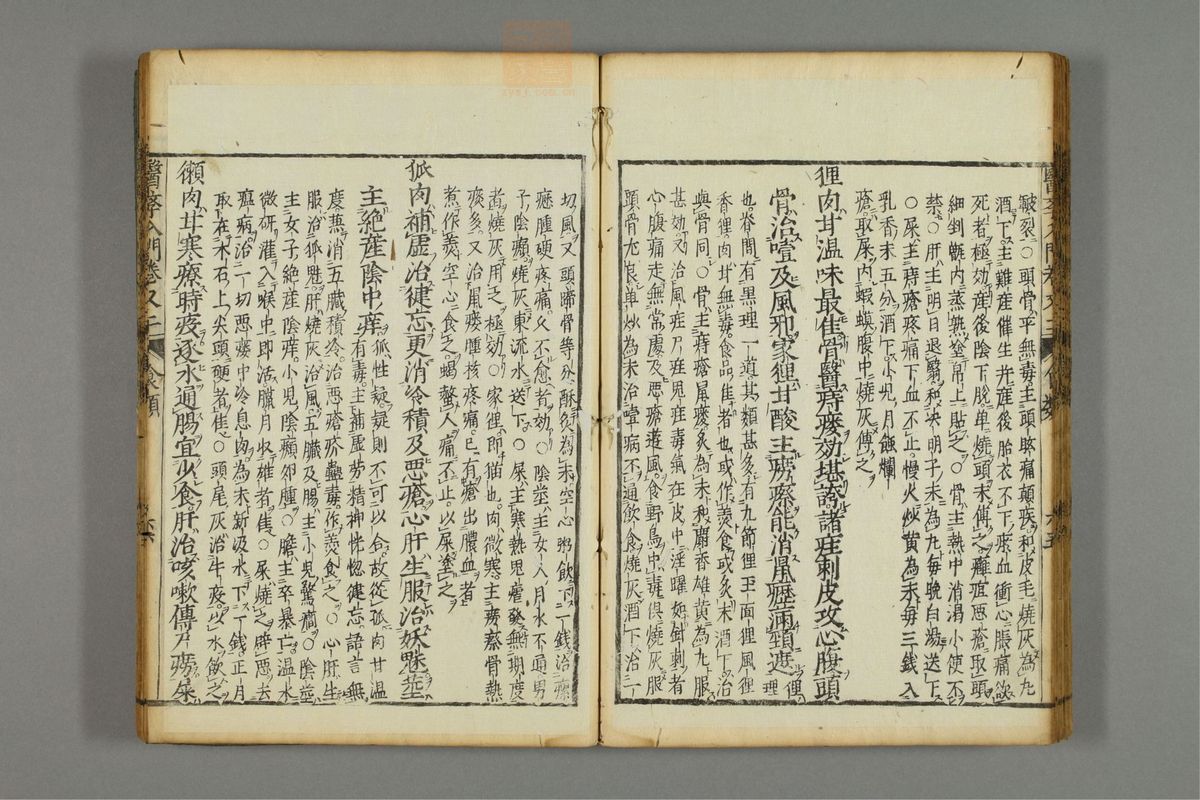 皴裂○頭骨平無毒主頭眩痛顛疾和皮毛燒灰為丸
酒下主難産催生并産後胎衣不下瘀血衝心脹痛欲
死者極効産後陰下脫單燒頭末傅之癰疽惡瘡取頭
細剉甑內蒸熱帛上貼之○骨主熱中消渴小便不
禁○肝主明目退翳和決明子末為丸每晚白湯送下
○屎主痔瘡疼痛下血不止慢火炒黃為末每三錢入
乳香末五分酒下小兒月蝕爛
瘡取屎內蝦蟆腹中燒灰傅之
狸肉甘溫味最佳骨醫痔瘻効堪誇諸疰刺皮攻心腹頭
骨治噎及風邪家狸甘酸主癆瘵能消鼠瘰滿頸遮
狸
理
也脊間有黑理一道其類甚多有九節狸玉面狸風狸
香狸肉甘無毒食品佳者也或作羹食或炙末酒下治
與骨同○骨主痔瘡鼠瘻炙為末和麝香雄黃為丸服
甚効又治風疰尸疰鬼疰毒氣在皮中淫曜如針刺者
心腹痛走無常處及惡瘡遊風食野鳥中毒俱燒灰服
頭骨尤良單炒為末治噎病不通飲食燒灰酒下治一
切風又頭蹄骨等分酥炙為末空心粥飲下二錢治瘰
癧腫硬疼痛久不愈者効○陰莖主女人月水不通男
子陰㿗燒灰東流水送下○屎主寒熱思瘧發無期度
者燒灰用之極効○家狸即猫也肉微寒主癆瘵骨熱
痰多又治鼠瘻腫核疼痛已有瘡出膿血者
煮作羹空心食之蝎螫人痛不止以屎塗之
狐肉補虛治健忘更消冷積及惡瘡心肝生服治妖魅莖
主絕産陰中痒
狐性疑疑則不可以合故從孤肉甘溫
有毒主補虛勞精神恍惚健忘語言無
度兼消五臟積冷治惡瘡疥蠱毒作羹食之○心肝生
服治狐魅肝燒灰治風五臟及腸主小兒驚癇○陰莖
主女子絕産陰痒小兒陰㿗卵腫○膽主卒暴亡溫水
微研灌入喉中即活臘月收雄者佳○屎燒之辟惡去
瘟病治一切惡瘻中冷息肉為末新汲水下一錢正月
取在木石上尖頭硬者佳○頭尾灰治牛疫以水飲之
獺肉甘寒療時疫逐水通腸宜少食肝治咳嗽傳尸癆屎